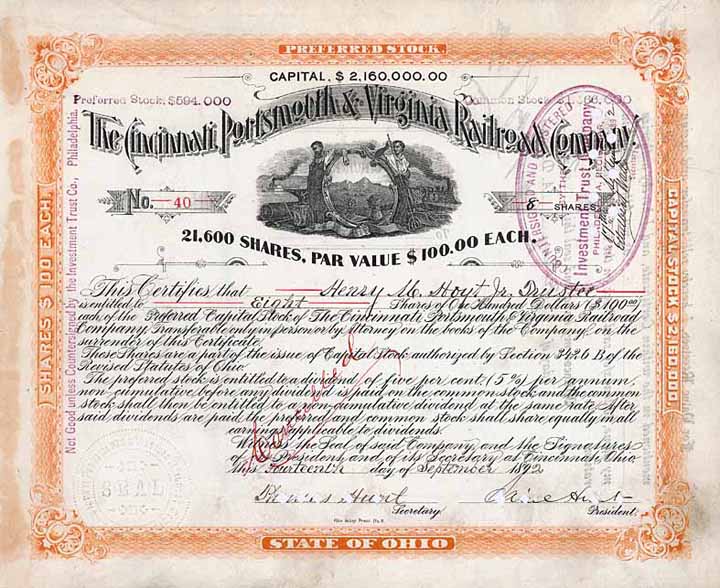 PREFERRED STOCK.
CAPITAL, $2,160,000.00
Preferred Stock, $594,000
Common Stock
The Cincinnati Portsmouth & Virginia Railroad Company.
No. 40
8 SHARES
21,600 SHARES, PAR VALUE $100.00 EACH.
This Certifies that Henry M. Hoyt Jr. Trustee
is entitled to Eight Shares of One Hundred Dollars ($100.00)
each of the Preferred Capital Stock of The Cincinnati Portsmouth & Virginia Railroad
Company, Transferable only in person or by Attorney on the books of the Company, on the
surrender of this Certificate.
These Shares are a part of the issue of Capital stock authorized by Section 3426 B of the
Revised Statutes of Ohio.
The preferred stock is entitled to a dividend of five per cent. (5%) per annum,
non-cumulative before any dividend is paid on the common stock and the common
stock shall then be entitled to a non-cumulative dividend at the same rate. After
said dividends are paid the preferred and common stock shall share equally in all
earnings applicable to dividends.
Witness the Seal of said Company and the Signatures
of its President and of its Secretary at Cincinnati, Ohio,
this thirteenth day of September 1892
Cancelled
Secretary
President.
STATE OF OHIO
SHARES $100 EACH.
CAPITAL STOCK $2,160,000
Not Good unless Countersigned by the Investment Trust Co., Philadelphia.
COUNTERSIGNED AND REGISTERED
Investment Trust Company
SEAL